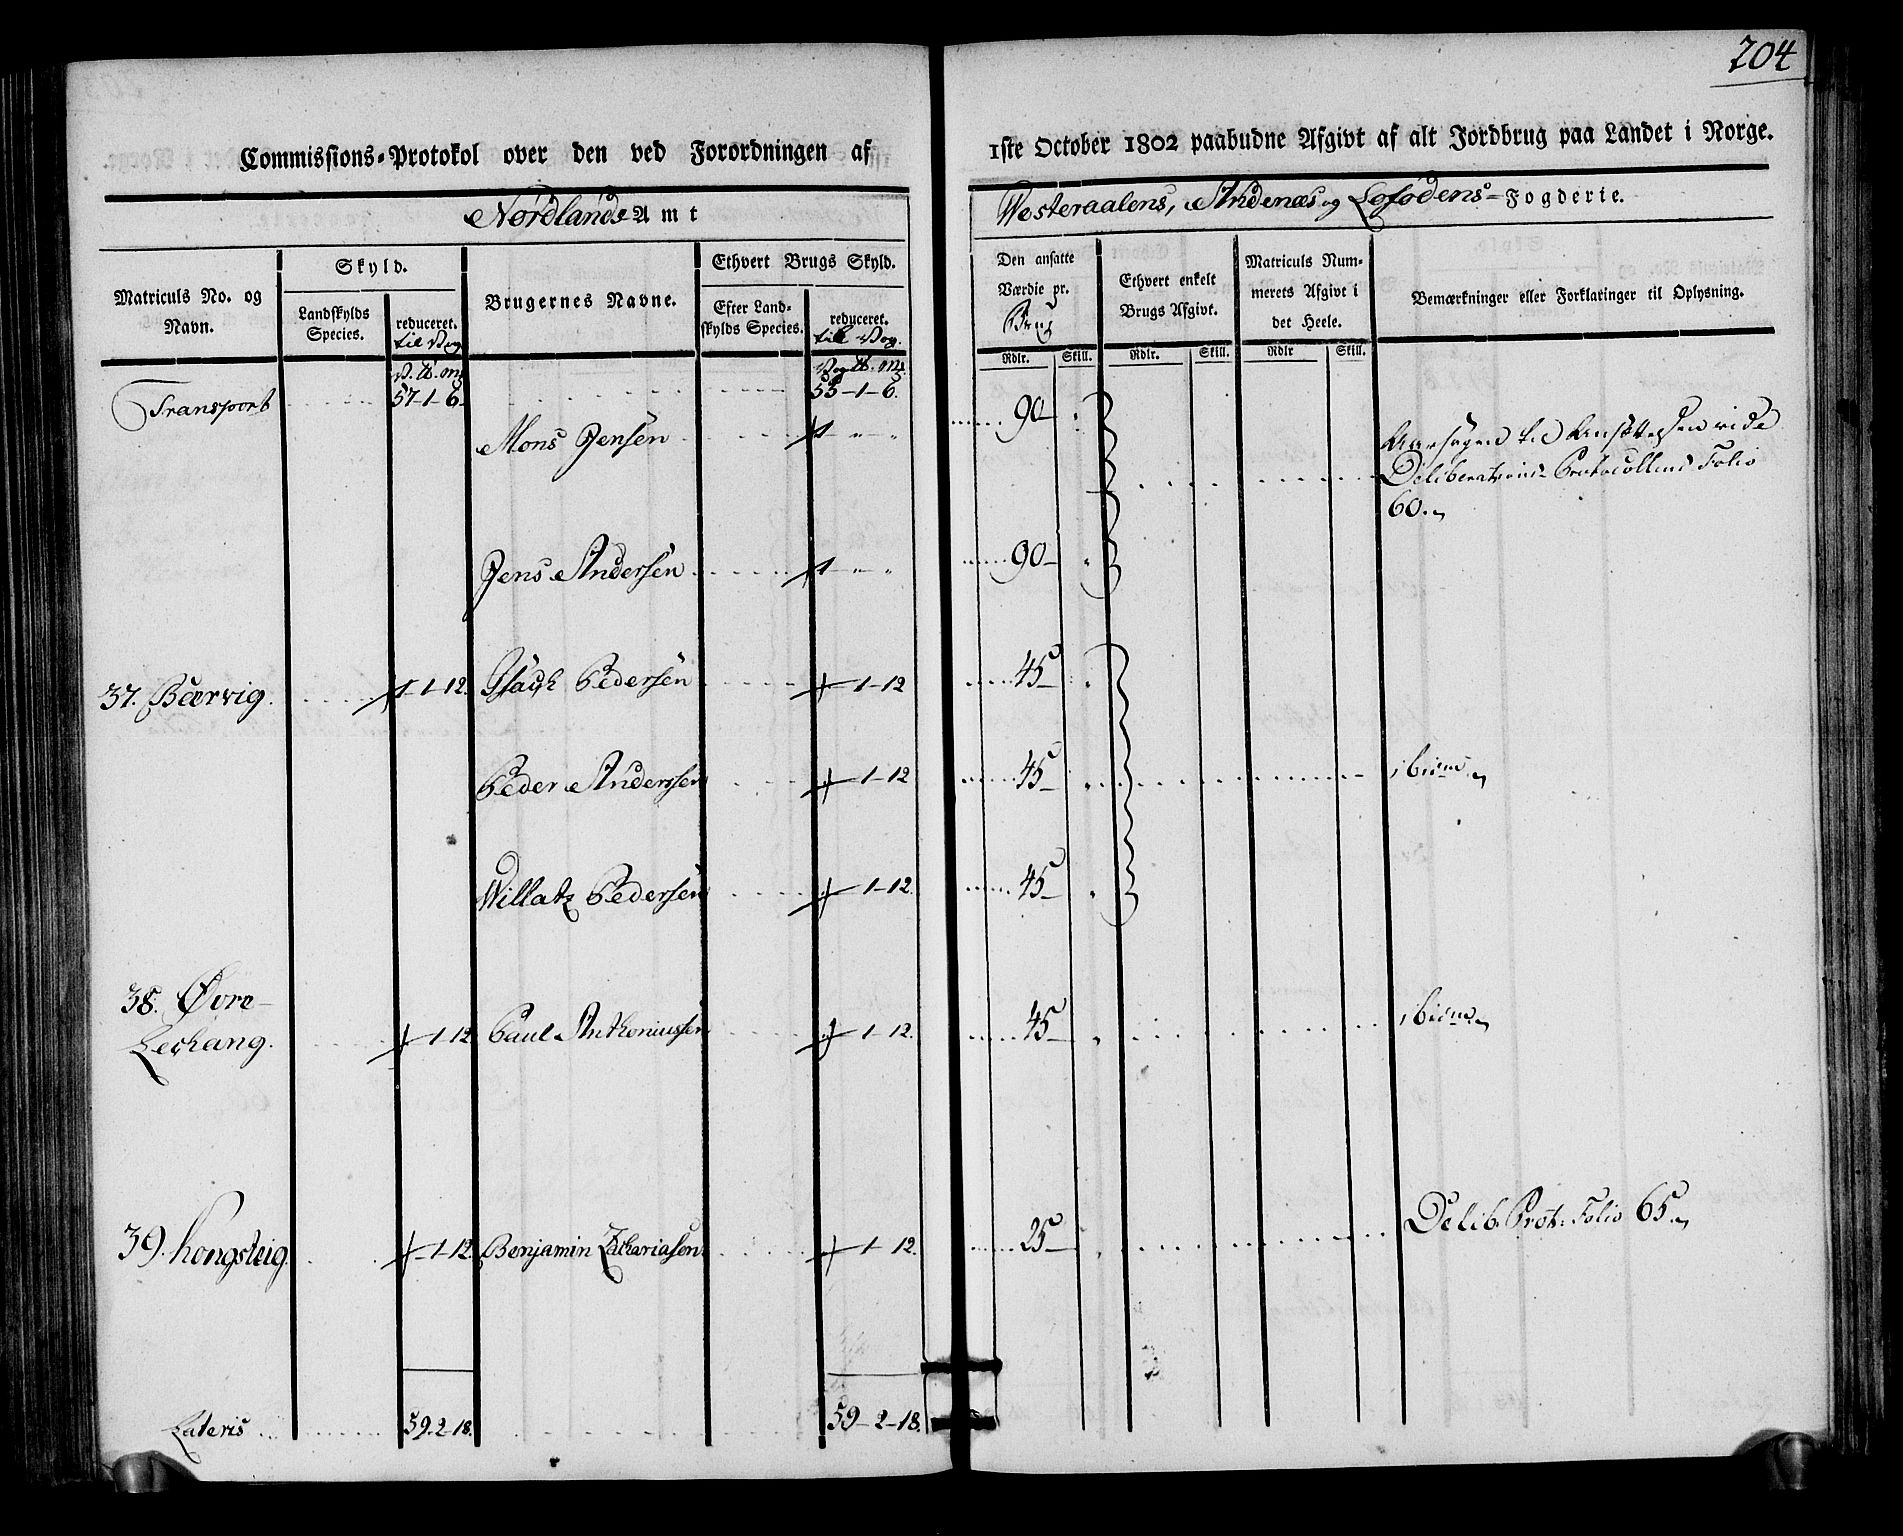 204
Commissions-Protokol over den ved Forordningen af
1ste October 1802 paabudne Afgivt af alt Jordbrug paa Landet i Norge.
Nordlands Amt
Westeraalens, Andenæs og Lofodens-Fogderie.
Matriculs No. og Navn.
Skyld.
Landskylds Species.
reduceret.
til Vog
Brugernes Navne.
Ethvert Brugs Skyld.
Efter Landskylds Species.
reduceret.
til Vog.
Den ansatte Værdie pr.
Brug
Rdlr. Skill.
Ethvert enkelt Brugs Afgivt.
Rdlr. Skill.
Matriculs Nummerets Afgivt i det Heele.
Rdlr Skill.
Bemærkninger eller Forklaringer til Oplysning.
Transport 57-1-6 55-1-6.
Mons Jensen 1 90
Aarsagen til Ansættelsen vide
Deliberations-Protocollens Folio
60.
Jens Andersen 1 90
37. Bærvig. 1-12. Pedersen 1-12 45
Peder Anderssen 1-12 45 ibidm
Willatz Pedersen 1-12. 45
38. Øvre-
Lechang. 1-12 Paul Anthoniussen 1-12. 45 ibidm
39. Hongsteig. 1-12 Benjamin Zachariasen 1-12. 25 Delib. Prot: Folio 65.
Lateris 59-2-18. 59-2-18.